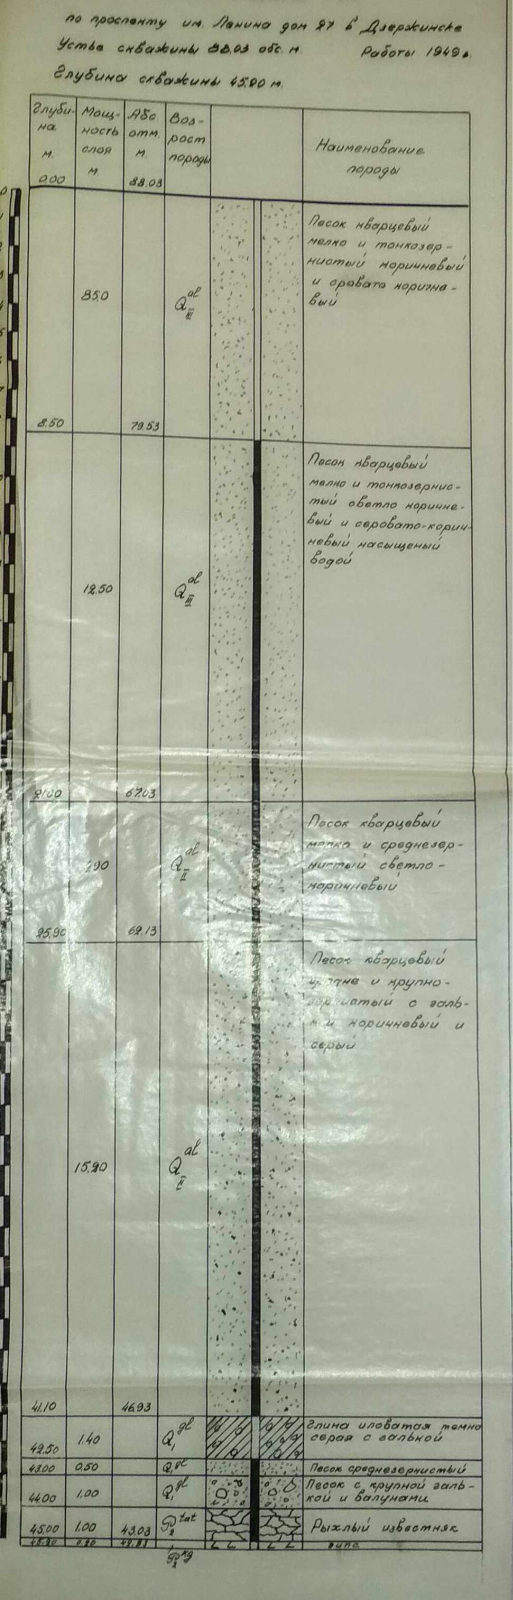 по проспекту им. Ленина дом 27 в Дзержинске
Устье скважины 88.03 абс. м. Работы 1949г.
Глубина скважины 45.20 м.
Глуби-на м. Мощ-ность слоя м Абс. отм. м. Воз-раст породы Наименование породы
0.00 88.03
Песок кварцевый
мелко и тонкозер-
нистый коричневый
и
вый
850
Q al III
8.50 79.53
Песок кварцевый
мелко и тонкозернис-
тый светло коричне-
вый и серовато-корич-
невый насыщеный
водой
12.50
Q al III
21.00 67.03
Песок кварцевый
мелко и среднезер-
нистый светло-
коричневый
Q al II
25.90 62.13
Песок кварцевый
и крупно-
с галь-
коричневый и
серый
15.20
Q al II
41.10 46.93
42.50 1.40 Q gl I Глина иловатая темно
серая с галькой
43.00 0.50 Q gl I Песок среднезернистый
44.00 1.00 Q gl I Песок с крупной галь-
кой и валунами
45.00 1.00 43.03 P tat 2 Рыхлый известняк
45.20 0.20 42.83
P kg 2